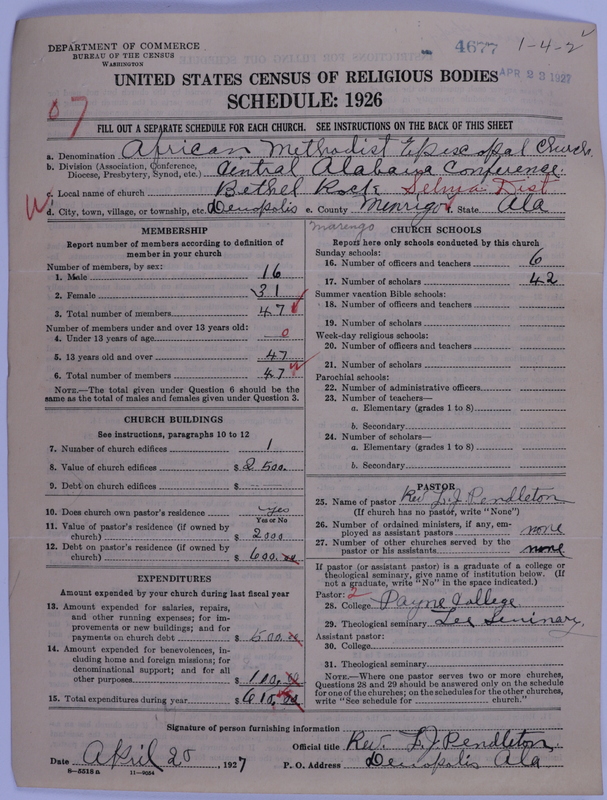 DEPARTMENT OF COMMERCE
BUREAU OF THE CENSUS
WASHINGTON
4677
1-4-2
APR 23 1927
UNITED STATES CENSUS OF RELIGIOUS BODIES
SCHEDULE: 1926
07
FILL OUT A SEPARATE SCHEDULE FOR EACH CHURCH. SEE INSTRUCTIONS ON THE BACK OF THIS SHEET
a. Denomination African Methodist Episcopal Church.
b. Division (Association, Conference, Diocese, Presbytery, Synod, etc.) Central Alabama Conference.
c. Local name of church Bethel Rock Selma Dist
d. City, town, village, or township, etc. Demopolis e. County Menrigo f. State Ala
Marengo
MEMBERSHIP
Report number of members according to definition of
member in your church
Number of members, by sex:
1. Male 16
2. Female 31
3. Total number of members 47
Number of members under and over 13 years old:
4. Under 13 years of age 0
5. 13 years old and over 47
6. Total number of members 47
NOTE.—The total given under Question 6 should be
same as the total of males and females given under Question 3.
CHURCH BUILDINGS
See instructions, paragraphs 10 to 12
7. Number of church edifices 1
8. Value of church edifices $ 2 500.
9. Debt on church edifices $
10. Does church own pastor's residence yes
Yes or No
11. Value of pastor's residence (if owned by
church) $ 2000
12. Debt on pastor's residence (if owned by
church) $ 600.
EXPENDITURES
Amount expended by your church during last fiscal year
13. Amount expended for salaries, repairs,
and other running expenses; for im-
provements or new buildings; and for
payments on church debt $ 500.
14. Amount expended for benevolences, in-
cluding home and foreign missions; for
denominational support; and for all
other purposes $ 110.
15. Total expenditures during year $ 610.
CHURCH SCHOOLS
Report here only schools conducted by this church
Sunday schools:
16. Number of officers and teachers 6
17. Number of scholars 42
Summer vacation Bible schools:
18. Number of officers and teachers
19. Number of scholars
Week-day religious schools:
20. Number of officers and teachers
21. Number of scholars
Parochial schools:
22. Number of administrative officers
23. Number of teachers—
a. Elementary (grades 1 to 8)
b. Secondary
24. Number of scholars—
a. Elementary (grades 1 to 8)
b. Secondary
PASTOR
25. Name of pastor Rev L. J. Pendleton
(If church has no pastor, write "None")
26. Number of ordained ministers, if any, em-
ployed as assistant pastors none
27. Number of other churches served by the
pastor or his assistants none
If pastor (or assistant pastor) is a graduate of a college or
theological seminary, give name of institution below. (If
not a graduate, write "No" in the space indicated.)
Pastor: 2
28. College Payne College
29. Theological seminary Lee Seminary
Assistant pastor:
30. College
31. Theological seminary
NOTE.—Where one pastor serves two or more churches,
Questions 28 and 29 should be answered only on the schedule
for one of the churches; on the schedules for the other churches,
write "See schedule for church."
Signature of person furnishing information
Official title Rev. L. J. Pendleton
Date April 20, 1927 P. O. Address Demopolis Ala
8—5518 a 11—9054